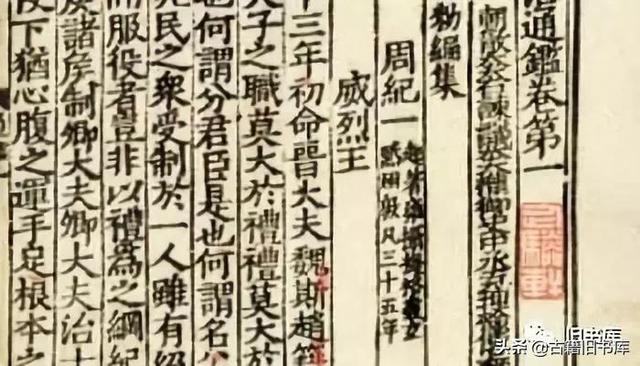 通鑑卷第一
朝散大夫右諫議大夫權御史中丞充理檢使
勑編集
周紀一
起著雍攝提格盡玄
黓困敦凡三十五年
威烈王
十三年初命晉大夫魏斯趙籍
天子之職莫大於禮禮莫大於
也何謂分君臣是也何謂名公
兆民之衆受制於一人雖有絕
而服役者豈非以禮爲之綱紀
諸侯制卿大夫卿大夫治士
下猶心腹之運手足根本之
旧书库
头条@古籍旧书库